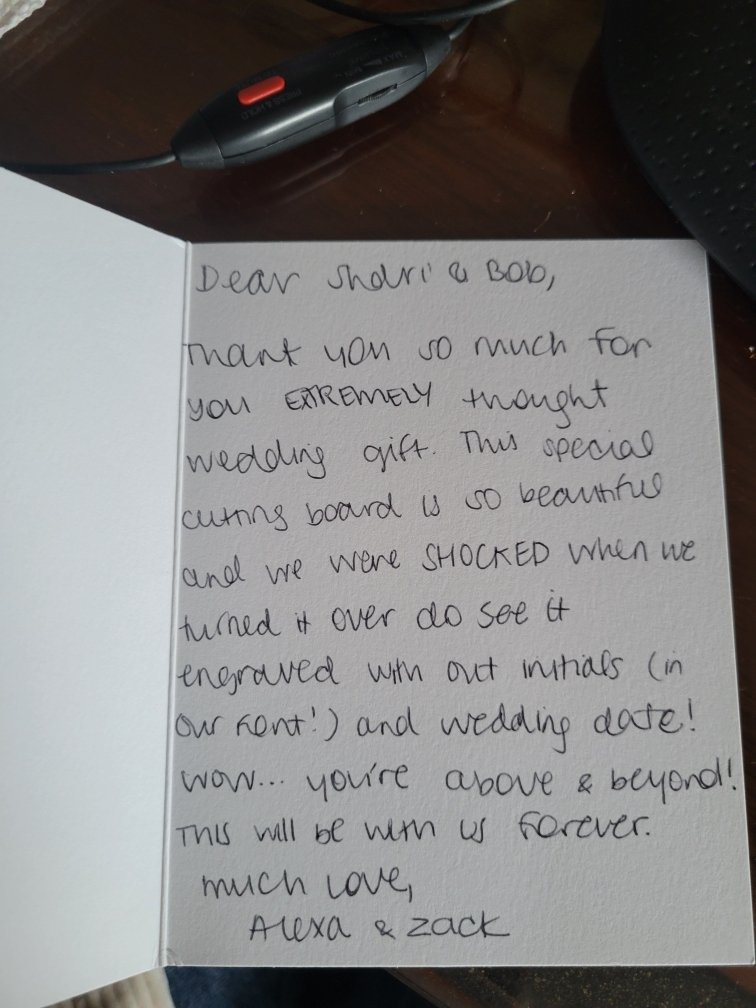 PRESS & HOLD
MAX
MIN
Dear Shari & Bob,
Thank you so much for
you EXTREMELY thought
wedding gift. This special
cutting board is so beautiful
and we were SHOCKED when we
turned it over do see it
engraved with out initials (in
our font!) and wedding date!
wow... you're above & beyond!
This will be with us forever.
much love,
Alexa & Zack